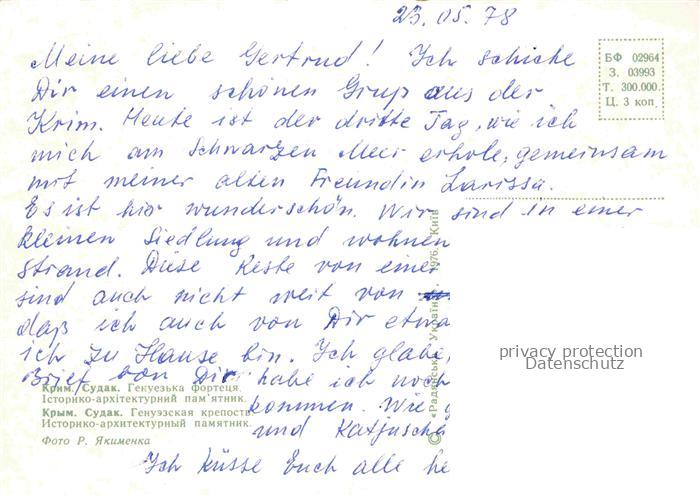 23.05.78
Meine liebe Gertrud! Ich schicke
Dir einen schönen Grup aus der
Krim. Heute ist der dritte Tag, wie ich
mich am Schwarzen Meer erhole, gemeinsam
mit meiner alten Freundin Larissa.
Es ist hier wunderschön. Wir sind in einer
kleinen Siedlung und wohnen
Strand. Diese Reste von einer
sind auch nicht weit von
daß ich auch von Dir etwa
ich zu Hause bin. Ich glaube,
Brief von Dir habe ich noch
kommen. Wie
und Katjuscha
Ich küsse Euch alle he
БФ 02964
З. 03993
Т. 300.000.
Ц. 3 коп.
Крим. Судак. Генуезька фортеця.
Історико-архітектурний пам'ятник.
Крым. Судак. Генуэзская крепость
Историко-архитектурный памятник.
Фото Р. Якименка
© «Радянська Україна», 1976, Київ
privacy protection
Datenschutz